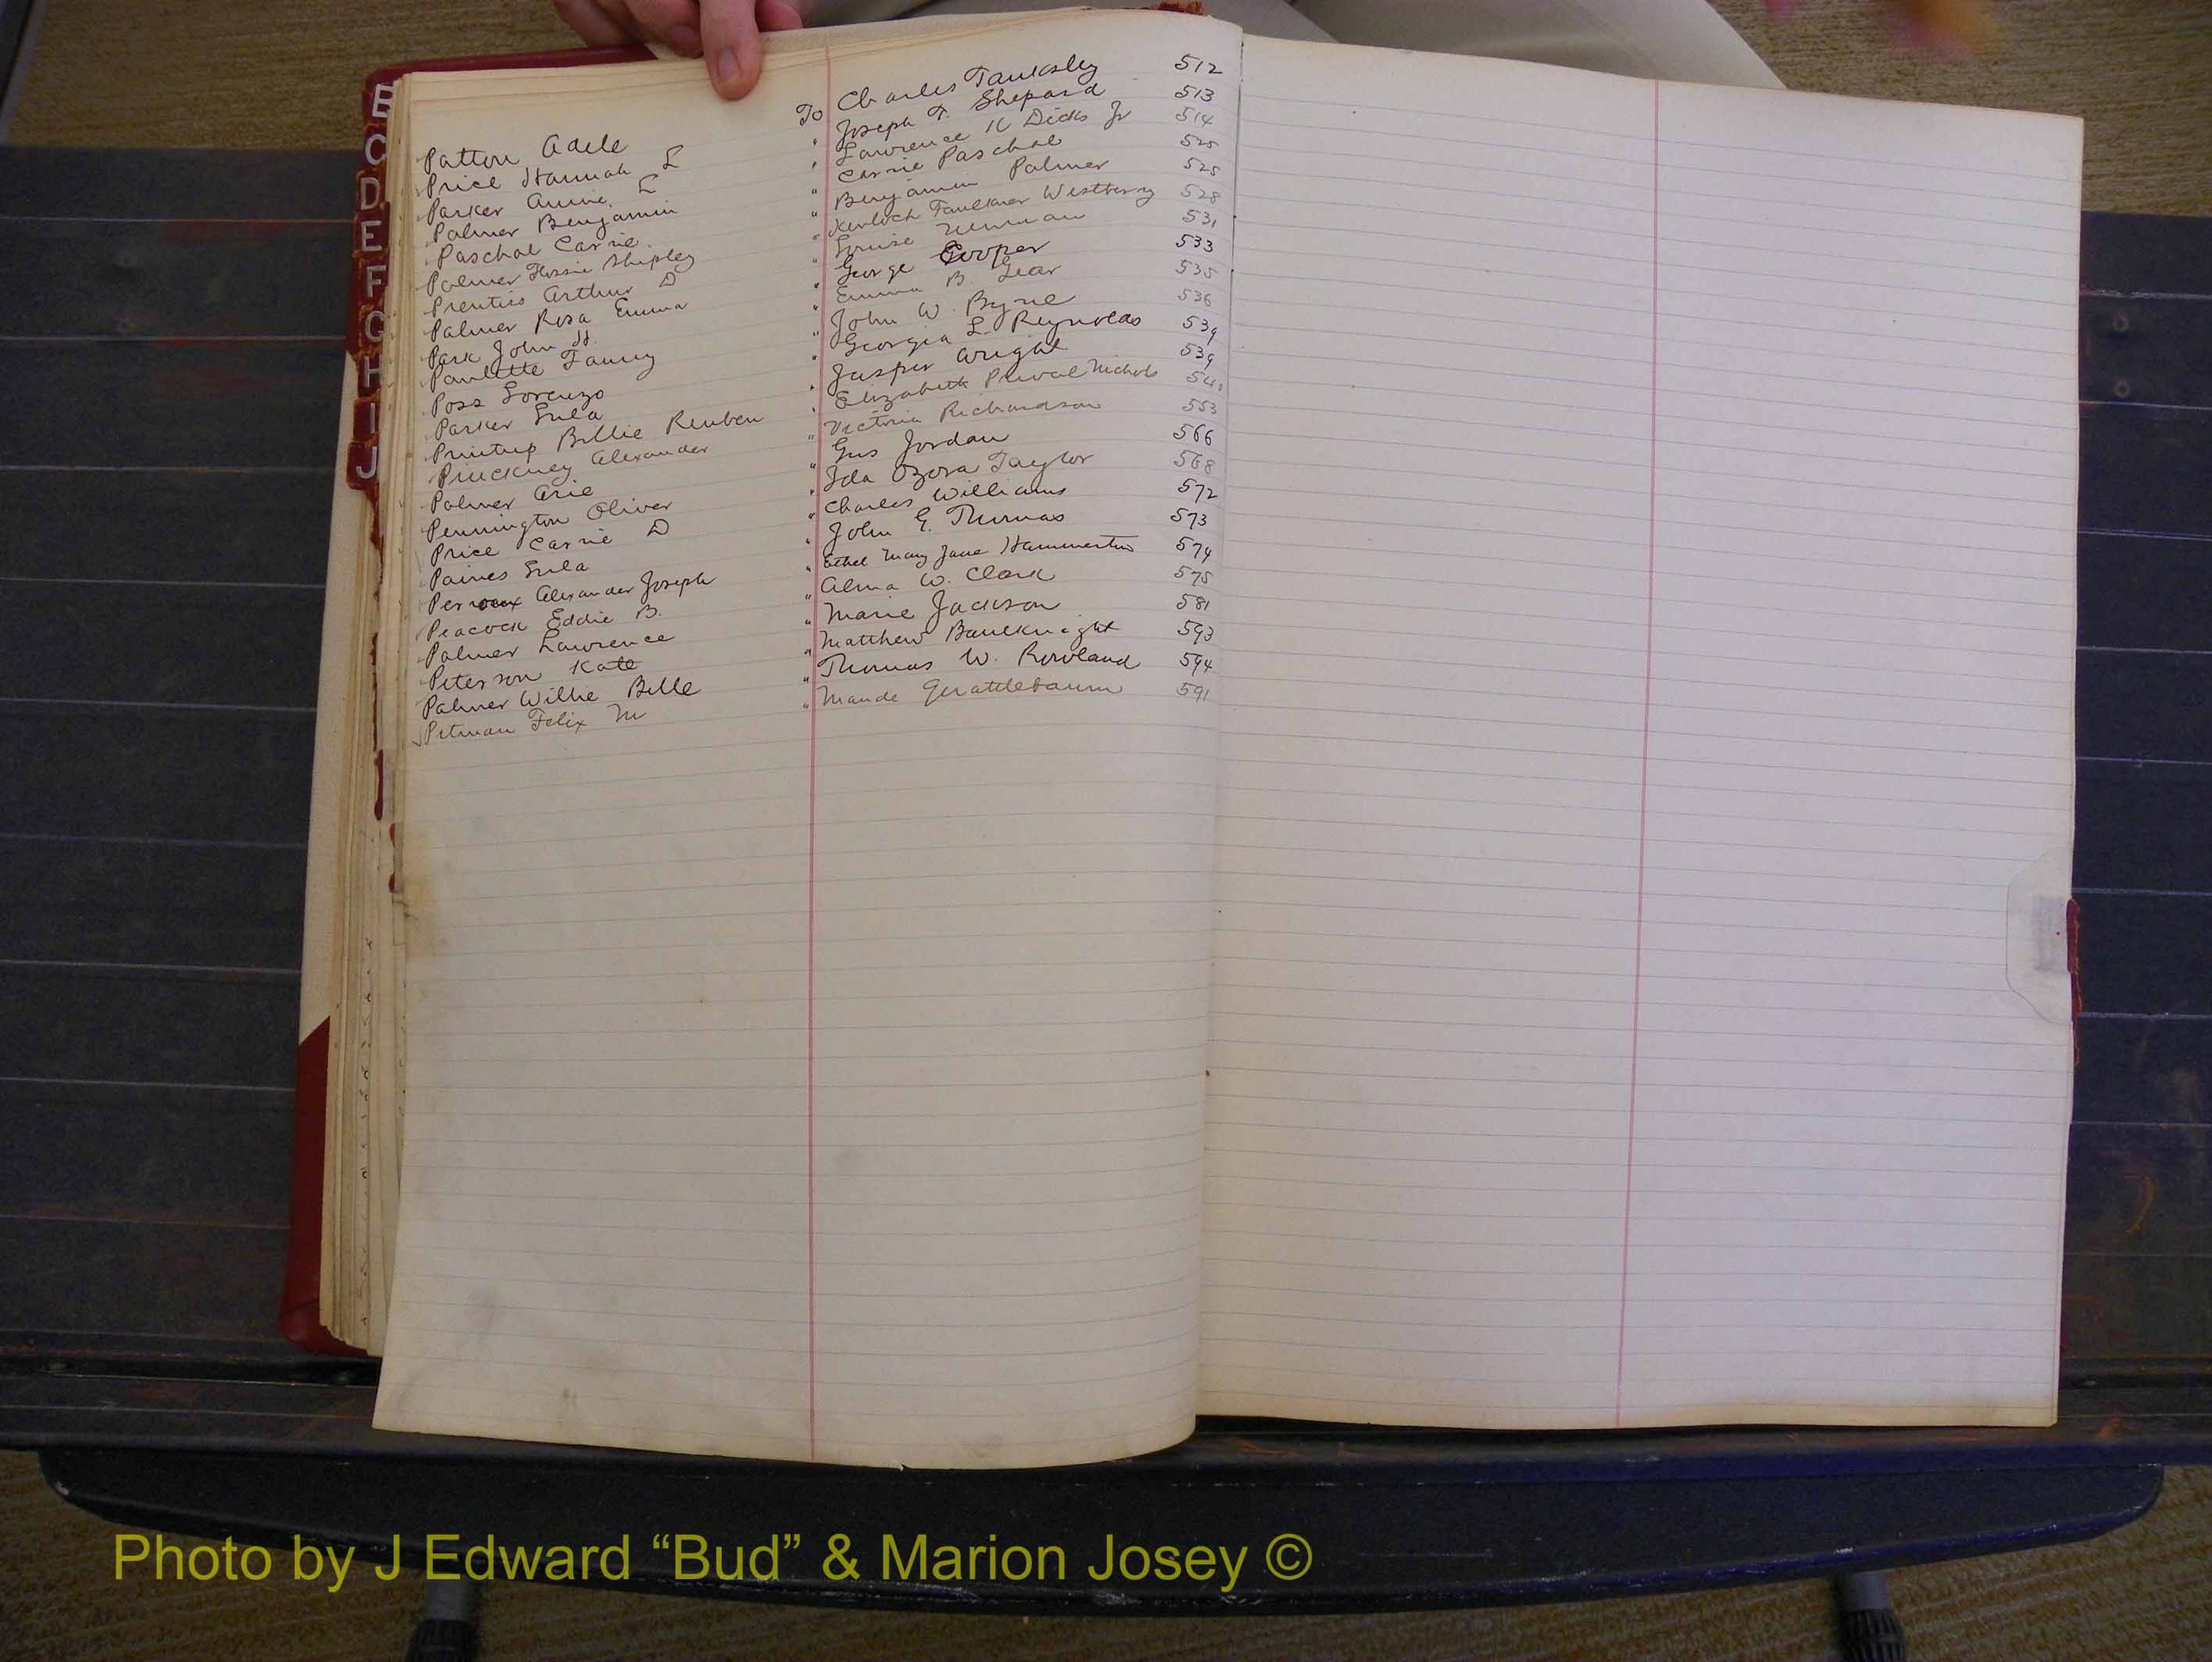 B
C
D
E
F
G
H
I
J
Patton Adele To Charles Tanksley 512
Price Hannah L " Joseph T. Shepard 513
Parker Annie L " Lawrence K Dicks Jr 514
Palmer Benjamin " Carrie Paschal 525
Paschal Carrie " Benjamin Palmer 525
Palmer Flossie Shipley " Kenloch Faulkner Westberry 528
Prentiss Arthur D " Louise Neuman 531
Palmer Rosa Emma " George Cooper 533
Park John H. " Emma B. Gear 535
Paulette Fanny " John W. Byrne 536
Poss Lorenzo " Georgia L. Reynolds 539
Parker Lula " Jasper Wright 539
Printup Billie Reuben " Elizabeth Nichols 540
Pinckney Alexander " Victoria Richardson 553
Palmer Arie " Gus Jordan 566
Pennington Oliver " Ida Ozora Taylor 568
Price Carrie D " Charles Williams 572
Paines Lula " John G. Thomas 573
Alexander Joseph " Ethel Mary Jane Hammerton 574
Peacock Eddie B. " Alma W. Clark 575
Palmer Lawrence " Marie Jackson 581
Peterson Kate " Matthew Bauknight 593
Palmer Willie Belle " Thomas W. Rowland 594
Pitman Felix M " Maude 591
Photo by J Edward “Bud” & Marion Josey ©